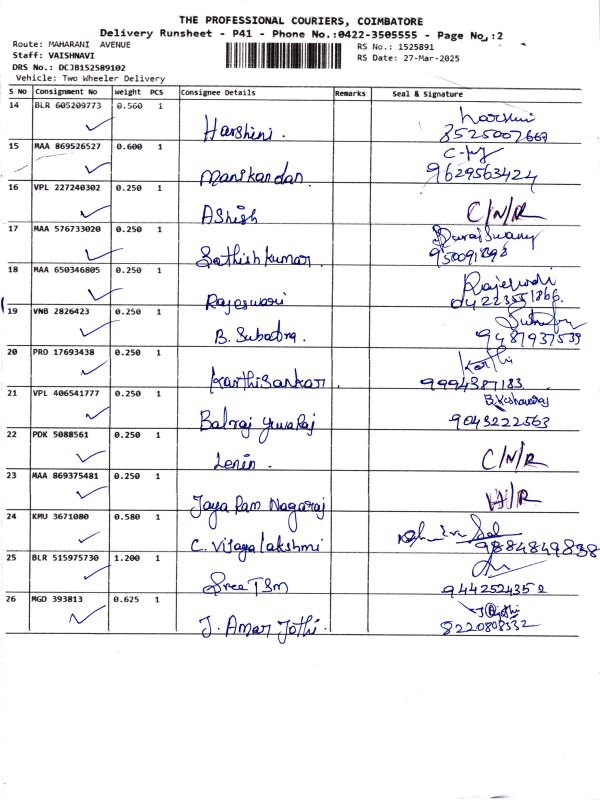 THE PROFESSIONAL COURIERS, COIMBATORE
Delivery Runsheet - P41 - Phone No.:0422-3505555 - Page No.:2
Route: MAHARANI AVENUE
RS No.: 1525891
Staff: VAISHNAVI
RS Date: 27-Mar-2025
DRS No.: DCJB152589102
Vehicle: Two Wheeler Delivery
S No Consignment No Weight PCS Consignee Details Remarks Seal & Signature
14 BLR 605209773 0.560 1 Harshini. Harshini
8525007667
15 MAA 869526527 0.600 1 Manikandan.
9629563424
16 VPL 227240302 0.250 1 Ashish C/N/R
17 MAA 576733020 0.250 1 Sathish kumar.
18 MAA 650346805 0.250 1 Rajeswari
04223551866.
19 VNB 2826423 0.250 1 B. Subatra.
9487937539
20 PRO 17693438 0.250 1 Karthisankar. Karthi
9994387183.
21 VPL 406541777 0.250 1 Balraj yuvaRaj
9043222563
22 PDK 5088561 0.250 1 Lenin. C/N/R
23 MAA 869375481 0.250 1 Jaya Ram Nagaraj
24 KMU 3671080 0.580 1 C. Vijaya lakshmi
9884849838
25 BLR 515975730 1.200 1 Sree TSM
9442524352
26 MGD 393813 0.625 1 J. Amar Jothi.
8220808332